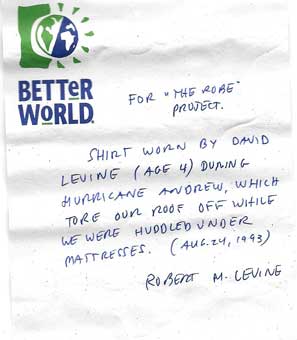 BETTER
WORLD.
FOR "THE ROBE"
PROJECT.
SHIRT WORN BY DAVID
LEVINE (AGE 4) DURING
HURRICANE ANDREW, WHICH
TORE OUR ROOF OFF WHILE
WE WERE HUDDLED UNDER
MATTRESSES. (AUG. 24, 1993)
ROBERT M. LEVINE